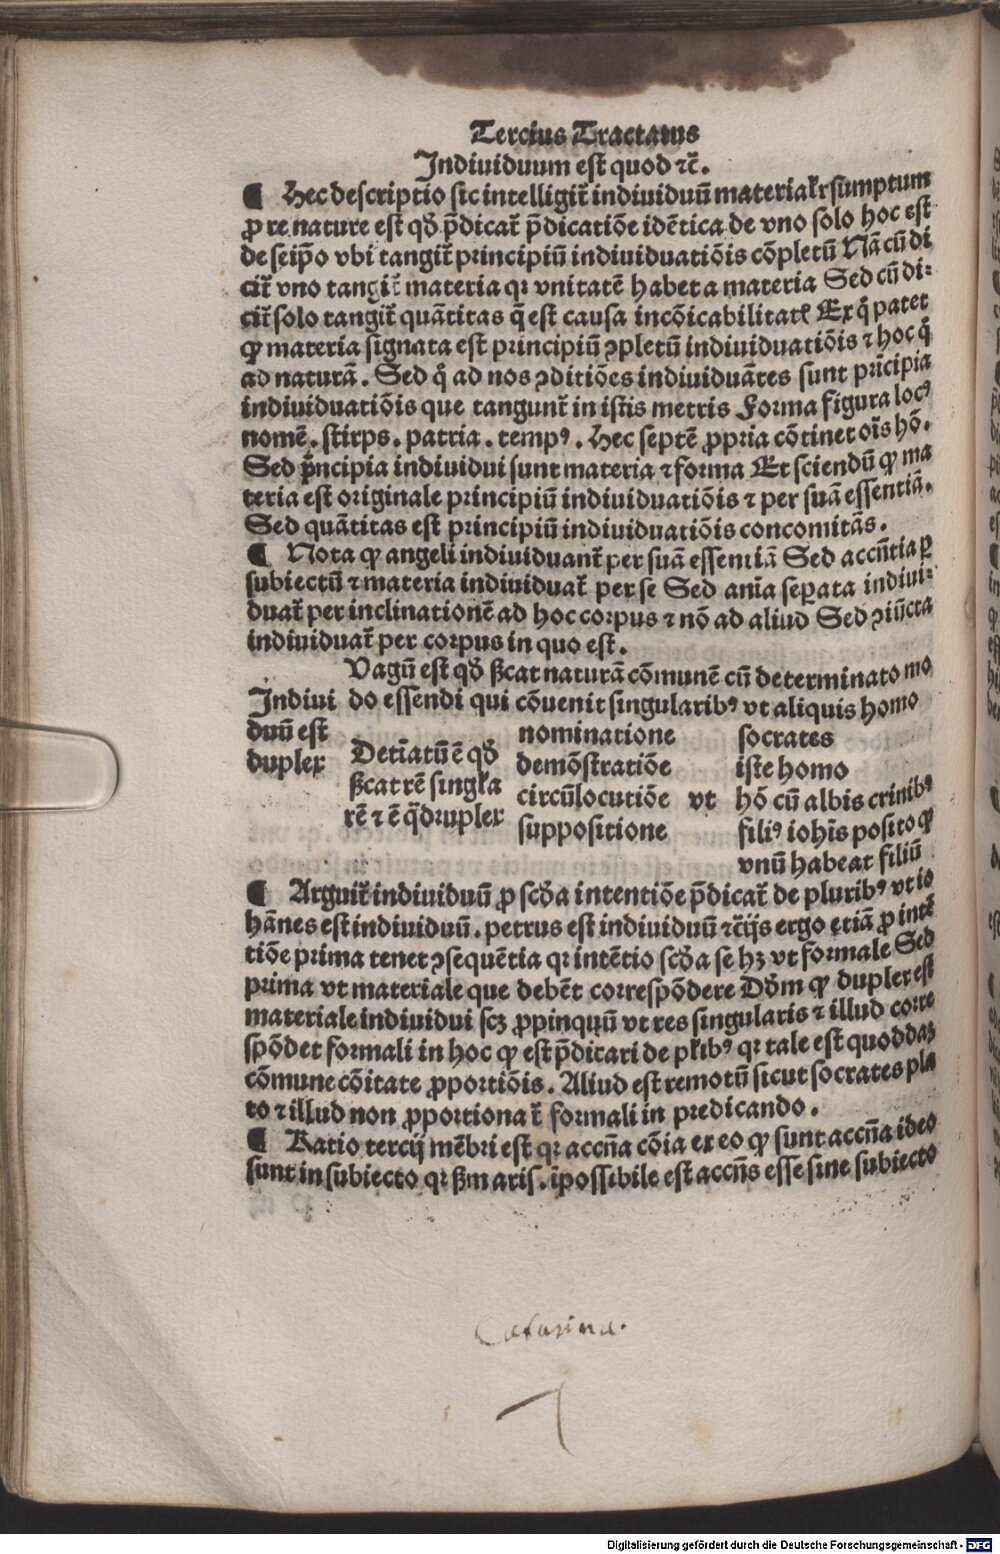 Tercius Tractatus
Indiuiduum est quod ⁊c̄.
¶ Hec descriptio sic intelligit̄ indiuiduū materialr̄ sumptum
ꝓ re nature est qd̄ p̄dicat̄ p̄dicatiōe idētica de vno solo hoc est
de seip̄o vbi tangit̄ principiū indiuiduatiōis cōpletū Nā cū di
cit̄ vno tangit̄ materia qꝛ vnitatē habet a materia Sed cū di⸗
cit̄ solo tangit̄ quātitas q̄ est causa incōicabilitatꝭ Ex q̊ patet
ꝙ materia signata est principiū ꝯpletū indiuiduatiōis ⁊ hoc q̊
ad naturā. Sed q̊ ad nos ꝯditiōes indiuiduātes sunt prīcipia
indiuiduatiōis que tangunt̄ in istis metris Forma figura locꝰ
nomē. stirps. patria. tempꝰ. Hec septē ꝓpria cōtinet oīs hō.
Sed pͥncipia indiuidui sunt materia ⁊ forma Et sciendū ꝙ ma
teria est originale principiū indiuiduatiōis ⁊ per suā essentiā.
Sed quātitas est principiū indiuiduatiōis concomitās.
¶ Nota ꝙ angeli indiuiduant̄ per suā essentiā Sed accn̄tia ꝑ
subiectū ⁊ materia indiuiduat̄ per se Sed anīa seꝑata indiui⸗
duat̄ per inclinationē ad hoc corpus ⁊ nō ad aliud Sed ꝯiūcta
indiuiduat̄ per corpus in quo est.
Vagū est qd̄ ſꝫcat naturā cōmunē cū determinato mo
Indiui do essendi qui cōuenit singularibꝰ vt aliquis homo
duū est nominatione socrates
duplex Det̄iatū ē qd̄ demōstratiōe iste homo
ſꝫcat rē singl̄a circūlocutiōe vt hō cū albis crinibꝰ
rē ⁊ ē q̄druplex suppositione filiꝰ ioh̄is posito ꝙ
vnū habeat filiū
¶ Arguit̄ indiuiduū ꝓ scd̄a intentiōe p̄dicat̄ de pluribꝰ vt io
hānes est indiuiduū. petrus est indiuiduū ⁊c̄ijs ergo etiā ꝓ intē
tiōe prima tenet ꝯsequētia qꝛ intētio scd̄a se hꝫ vt formale Sed
prima vt materiale que debēt correspōdere Dd̄m ꝙ duplex est
materiale indiuidui scꝫ ꝓpinquū vt res singularis ⁊ illud corre
spōdet formali in hoc ꝙ est p̄dicari de pl̄ibꝰ qꝛ tale est quoddaꝫ
cōmune cōitate ꝓportiōis. Aliud est remotū sicut socrates pla
to ⁊ illud non ꝓportionat̄ formali in predicando.
¶ Ratio tercij mēbri est qꝛ accn̄a cōia ex eo ꝙ sunt accn̄a ideo
sunt in subiecto qꝛ ſꝫm aris. īpossibile est accn̄s esse sine subiecto
Catarina.
Digitalisierung gefördert durch die Deutsche Forschungsgemeinschaft - DFG